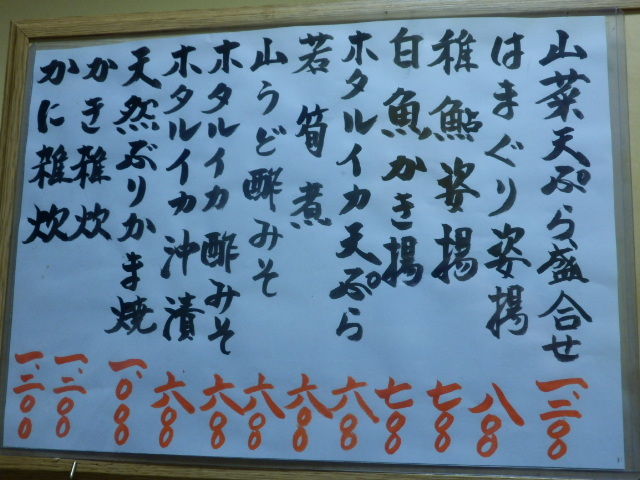 山菜天ぷら盛合せ 一、三〇〇
はまぐり姿揚 八〇〇
稚鮎姿揚 七〇〇
白魚かき揚 七〇〇
ホタルイカ天ぷら 六〇〇
若筍煮 六〇〇
山うど酢みそ 六〇〇
ホタルイカ酢みそ 六〇〇
ホタルイカ沖漬 六〇〇
天然ぶりかま焼 一、〇〇〇
かき雑炊 一、三〇〇
かに雑炊 一、三〇〇